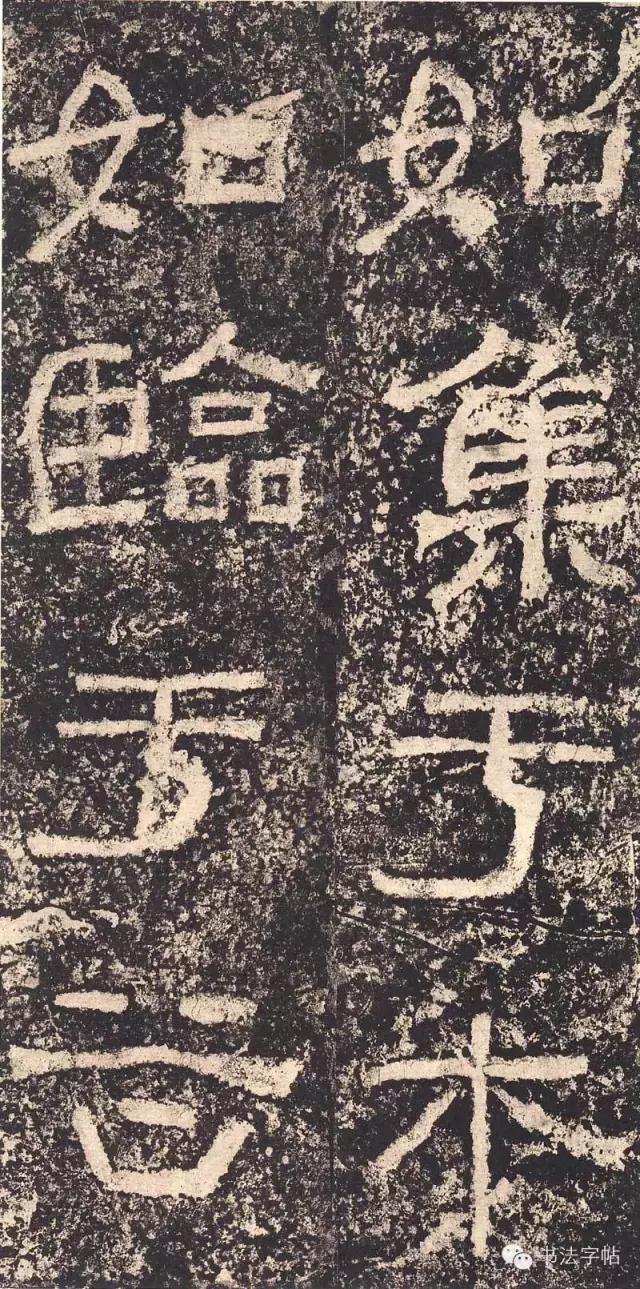 如集于木
如臨于谷
书法字帖